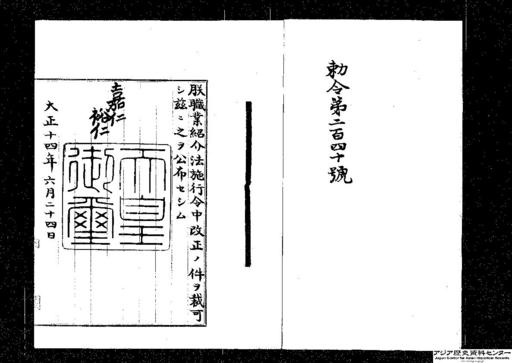 勅令第二百四十號
朕職業紹介法施行令中改正ノ件ヲ裁可
シ茲ニ之ヲ公布セシム
嘉仁
裕仁
天皇
御璽
大正十四年六月二十四日
アジア歴史資料センター
Japan Center for Asian Historical Records